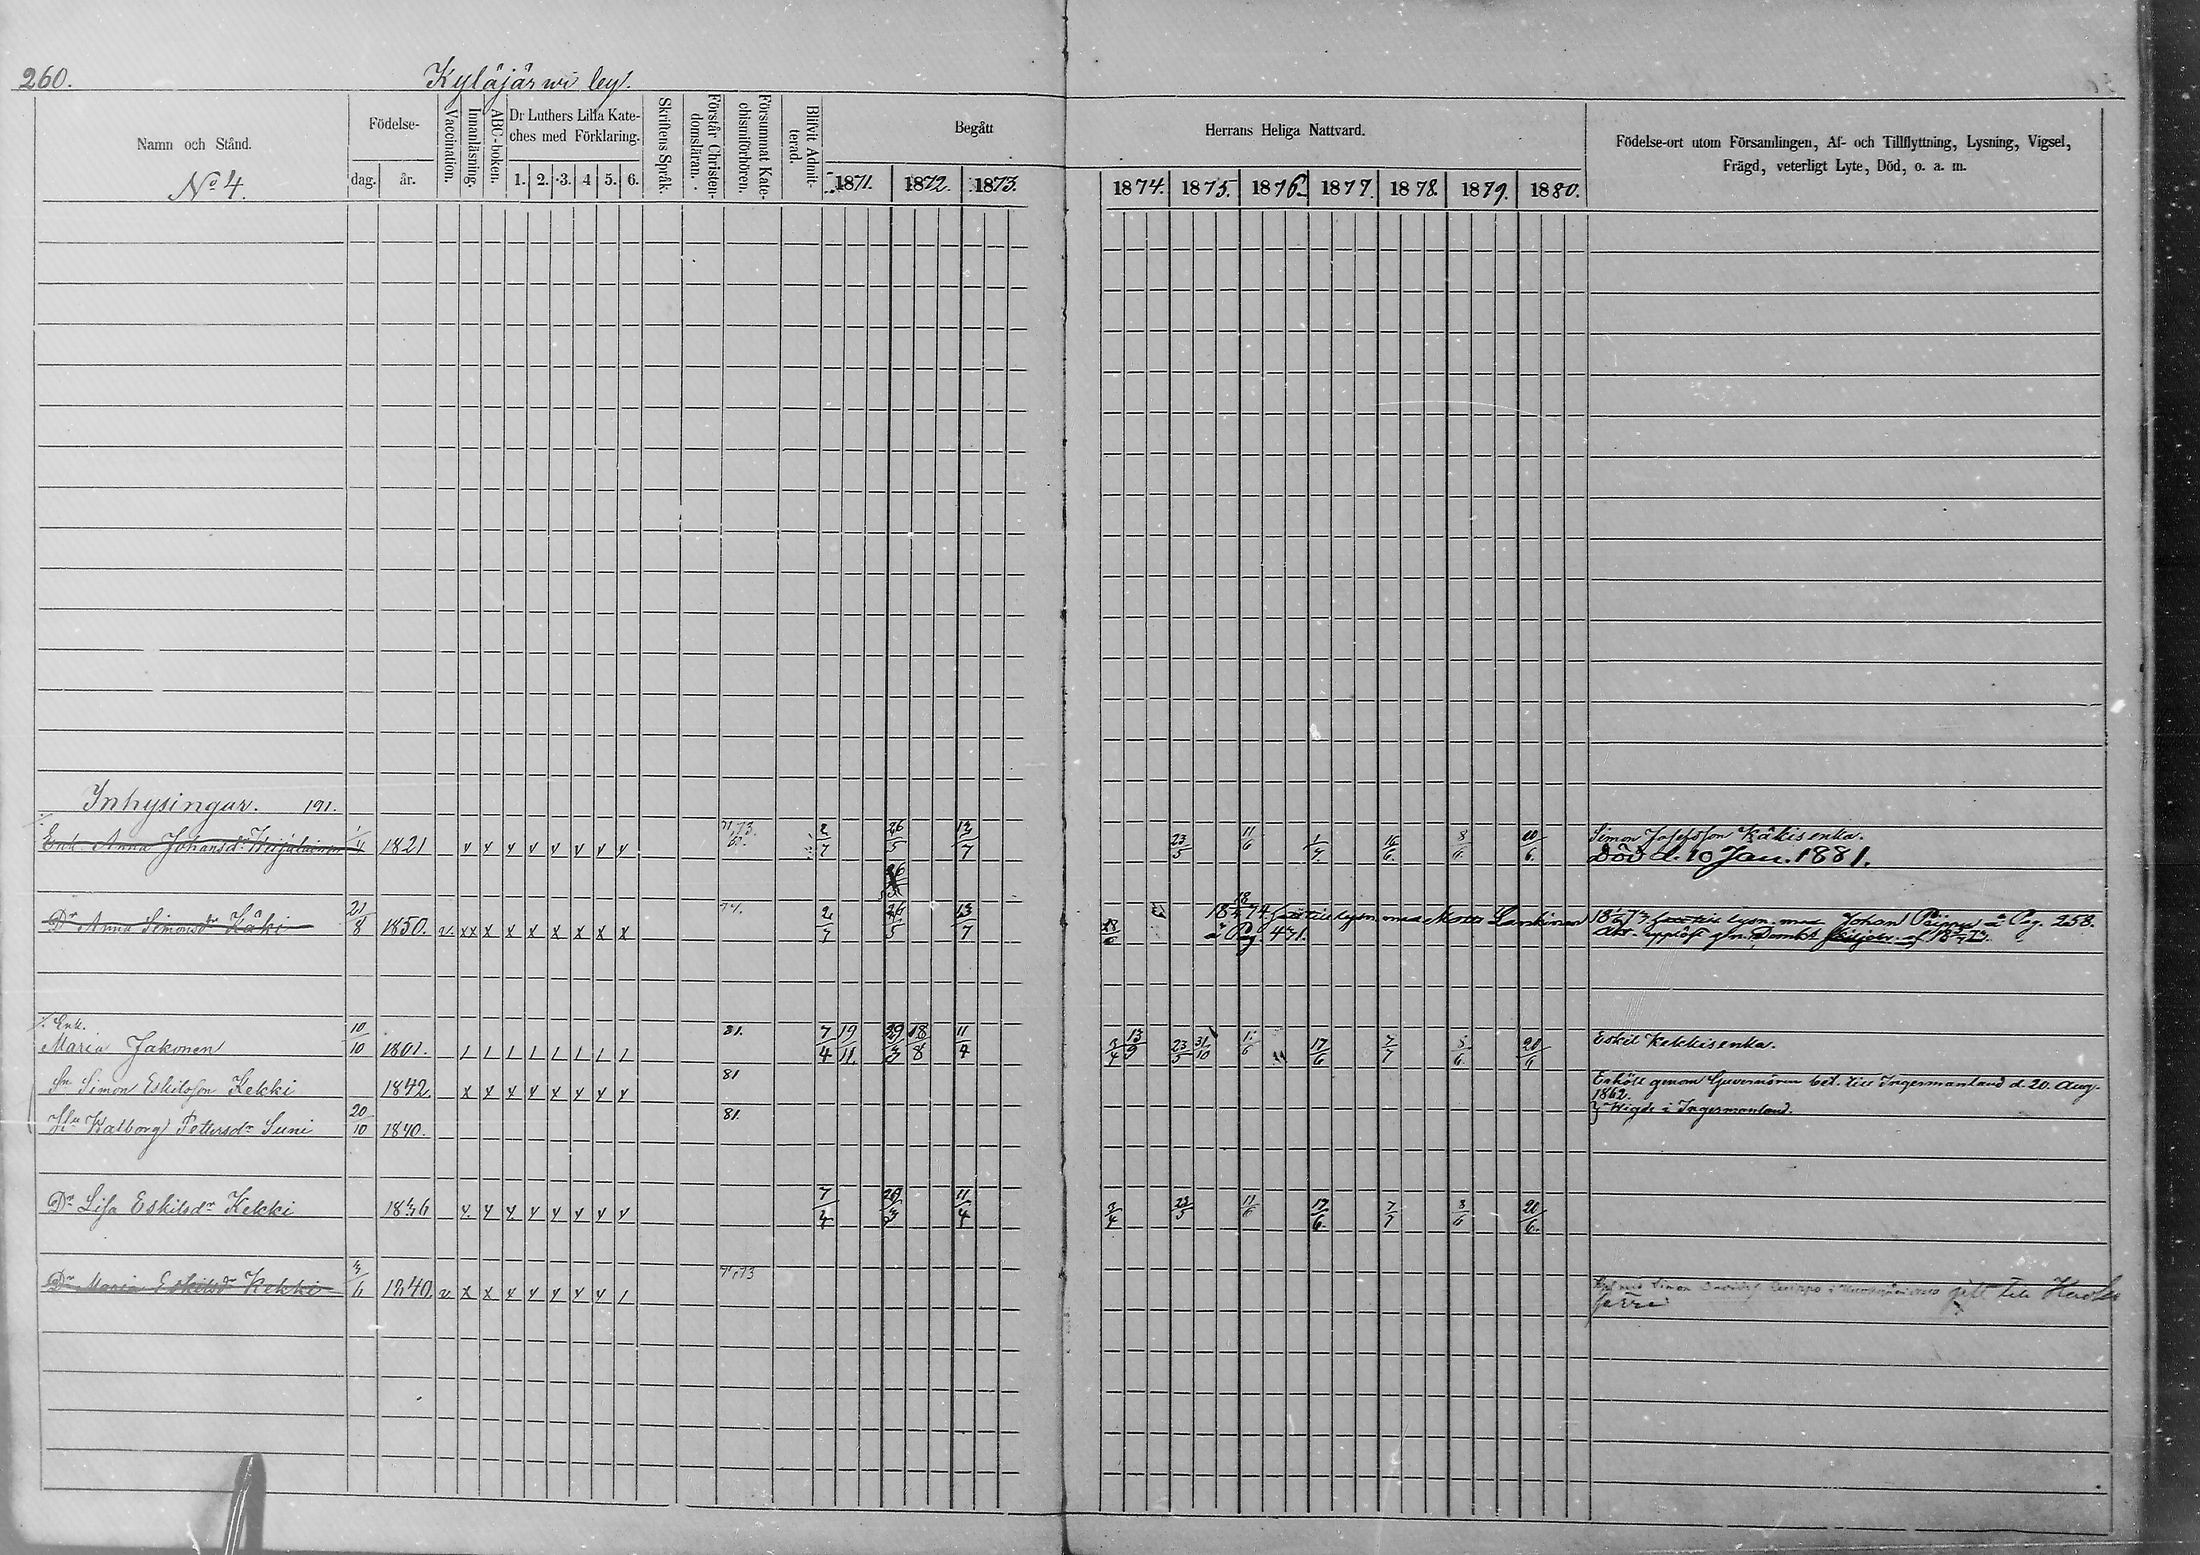 260. Kyläjärwi ley.
Namn och Stånd.
No 4.
Födelse-
dag. år.
Vaccination.
Innanläsning.
ABC-boken.
Dr Luthers Lilla Kate-
ches med Förklaring.
1. 2. 3. 4 5. 6.
Skriftens Språk.
Förstår Christen-
domsläran.
Försummat Kate-
chismiförhören.
Blifvit Admit-
terad.
Begått Herrans Heliga Nattvard.
1871. 1872. 1873. 1874. 1875. 1876. 1877. 1878. 1879. 1880.
Födelse-ort utom Församlingen, Af- och Tillflyttning, Lysning, Vigsel,
Frägd, veterligt Lyte, Död, o. a. m.
Inhysingar. 191.
Enk. Anna Johansdr 1/4 1821 x x x x x x x x 71,73. 2/7 26/5 13/7 23/5 11/6 1/7 16/6 8/6 20/6 Simon Josefsson Käkis enka.
Död d. 10 Jan. 1881.
Dr Anna Simonsdr Käki 21/8 1850. v. x x x x x x x x 74. 2/7 26/5 13/7 18 74 till lysn. med Matts Lankinen 18 73 lysn. med Johan å Pag. 258.
å Pag. 471.
Enk.
Maria Jakonen 10/10 1801. / / / / / / / / 81. 7/4 19/11 29/3 18/8 11/4 3/4 13/9 23/5 31/10 17/6 7/7 8/6 20/6 Eskil Kekkis enka.
Sn Simon Eskilsson Kekki 1842. x x x x x x x x 81 Erhöll genom Guvernören bet. till Ingermanland d. 20. Aug.
1862.
Hu Walborg Pettersdr Suni 20/10 1840. 81. Wigde i Ingermanland.
Dr Lisa Eskilsdr Kekki 1836 x x x x x x x x 7/4 29/3 11/4 3/4 23/5 11/6 17/6 7/7 8/6 20/6
Dr Maria Eskilsdr Kekki 3/6 1840. v x x x x x x x / 71,73 Simon gift till